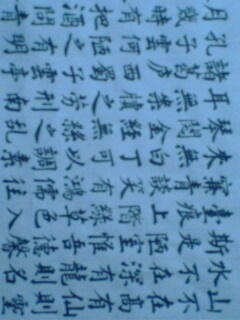 山不在高有仙則靈
水不在深有龍則名
斯是陋室惟吾德馨
痕上階綠草色入
青談笑有鴻儒往
来無白丁可以調素
琴閱金經無絲之乱
耳無案牘之勞刑南
諸葛庐西蜀子雲亭
孔子雲何陋之有明
月幾時有把酒問青